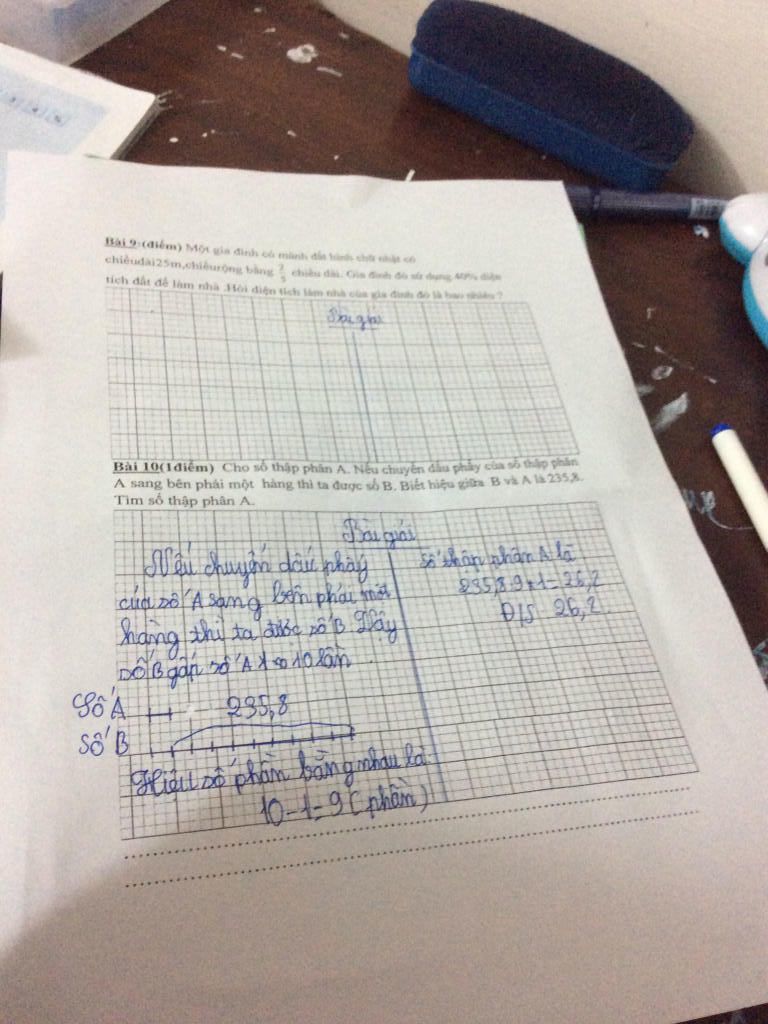 Bài 9:(điểm) Một gia đình có mảnh đất hình chữ nhật có
chiềudài25m,chiềurộng bằng 2/5 chiều dài. Gia đình đó sử dụng 40% diện
tích đất để làm nhà .Hỏi diện tích làm nhà của gia đình đó là bao nhiêu ?
Bài giải
Bài 10(1điểm) Cho số thập phân A. Nếu chuyển dấu phẩy của số thập phân
A sang bên phải một hàng thì ta được số B. Biết hiệu giữa B và A là 235,8.
Tìm số thập phân A.
Bài giải
Nếu chuyển dấu phẩy
của số A sang bên phải một
hàng thì ta được số B Vậy
số B gấp số A 10 lần
Số A
235,8
Số B
Hiệu số phần bằng nhau là:
10-1=9(phần)
Số thân phân A là
235,8:9x1=26,2
Đ/S 26,2